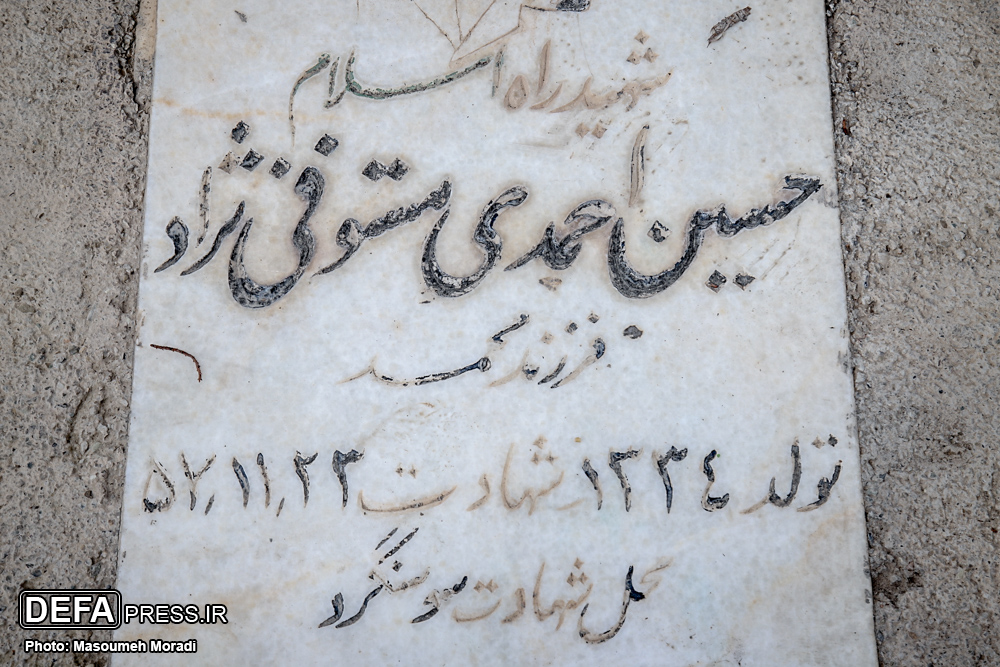 شهید راه اسلام
حسین احمدی مستوفی نژاد
فرزند محمد
تولد ۱۳۳٤ شهادت ۵۲٫۱۱٫۲۳
محل شهادت سوسنگرد
DEFAPRESS.IR
Photo: Masoumeh Moradi